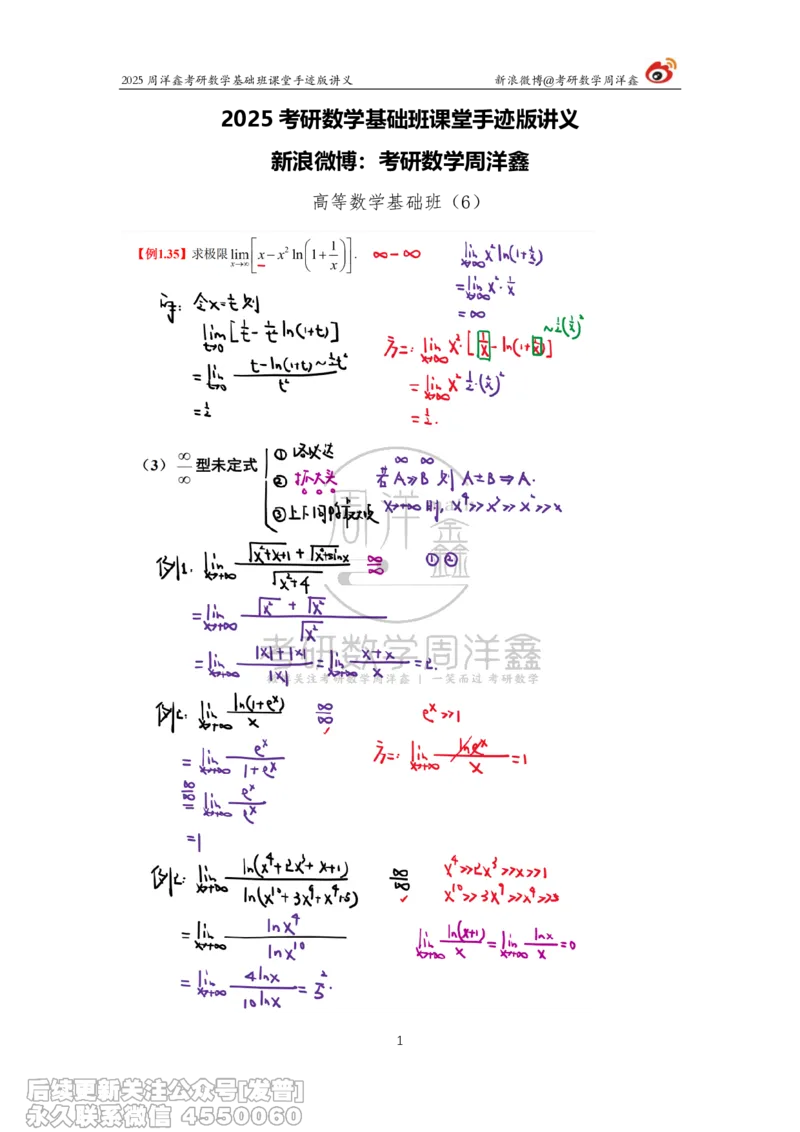 2025 周洋鑫考研数学基础班课堂手迹版讲义 新浪微博@考研数学周洋鑫
2025 考研数学基础班课堂手迹版讲义
新浪微博：考研数学周洋鑫
高等数学基础班（6）
【例1.35】求极限 lim x→∞ [x − x² ln(1 + 1/x)]. ∞−∞
lim x→∞ x² ln(1+1/x)
= lim x→∞ x²·1/x
= ∞
令 x=1/t 则
lim t→0 [1/t − 1/t² ln(1+t)]
= lim t→0 (t−ln(1+t) ~ ½t²)/t²
= ½
方二: lim x→∞ x²·[1/x − ln(1+1/x)] ~½(1/x)²
= lim x→∞ x² ½·(1/x)²
= ½.
（3）∞/∞ 型未定式
① 洛必达
② 抓大头
③ 上下同时÷最大项
∞ ∞
若 A≫B 则 A±B ⇒ A.
x→+∞ 时, x⁴≫x³≫x²≫x
例1. lim x→+∞ (√(x²+x+1) + √(x²+sinx))/√(x²+4) ∞/∞ ①②
= lim x→+∞ (√x² + √x²)/√x²
= lim x→+∞ (|x|+|x|)/|x| = lim x→+∞ (x+x)/x = 2.
关注考研数学周洋鑫 | 一笑而过 考研数学
例2. lim x→+∞ ln(1+eˣ)/x ∞/∞ eˣ≫1
= lim x→+∞ eˣ/(1+eˣ)
方二: lim x→+∞ ln eˣ/x = 1
∞/∞ = lim x→+∞ eˣ/eˣ
= 1
例2: lim x→+∞ ln(x⁴+2x³+x+1)/ln(x¹⁰+3x⁹+x⁴+5) ∞/∞
x⁴≫2x³≫x≫1
x¹⁰≫3x⁹≫x⁴≫5
= lim x→+∞ ln x⁴/ln x¹⁰
lim x→+∞ ln(x+1)/x = lim x→+∞ lnx/x = 0
= lim x→+∞ 4lnx/10lnx = 2/5.
1
后续更新关注公众号[发普]
永久联系微信 4550060
周洋鑫
考研数学周洋鑫